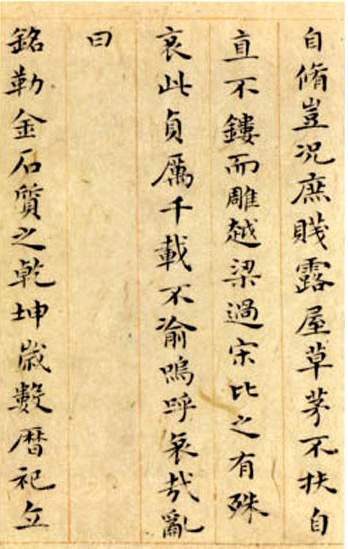 自脩豈況庶賤露屋草茅不扶自
直不鏤而雕越梁過宋比之有殊
哀此貞厲千載不渝嗚呼哀哉亂
曰
銘勒金石質之乾坤歲數曆祀立